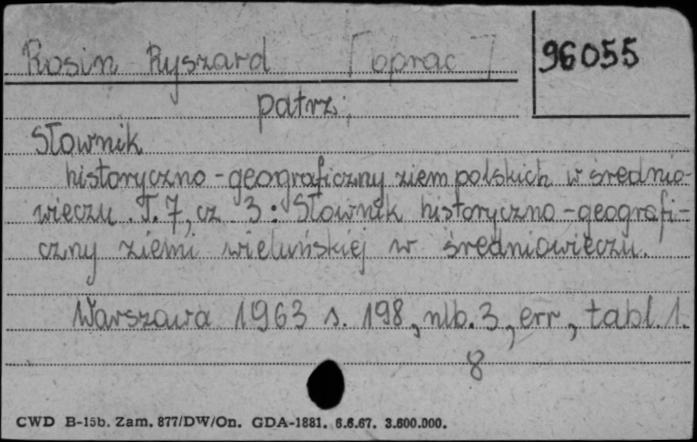 Rosin Ryszard [oprac]
96055
patrz;
Słownik
historyczno-geograficzny ziem polskich w średnio-
wieczu. T. 7, cz 3: Słownik historyczno-geografi-
czny ziemi wieluńskiej w średniowieczu.
Warszawa 1963 s. 198, nlb. 3, err, tabl. 1.
8
CWD B-15b. Zam. 877/DW/On. GDA-1881. 6.6.67. 3.600.000.